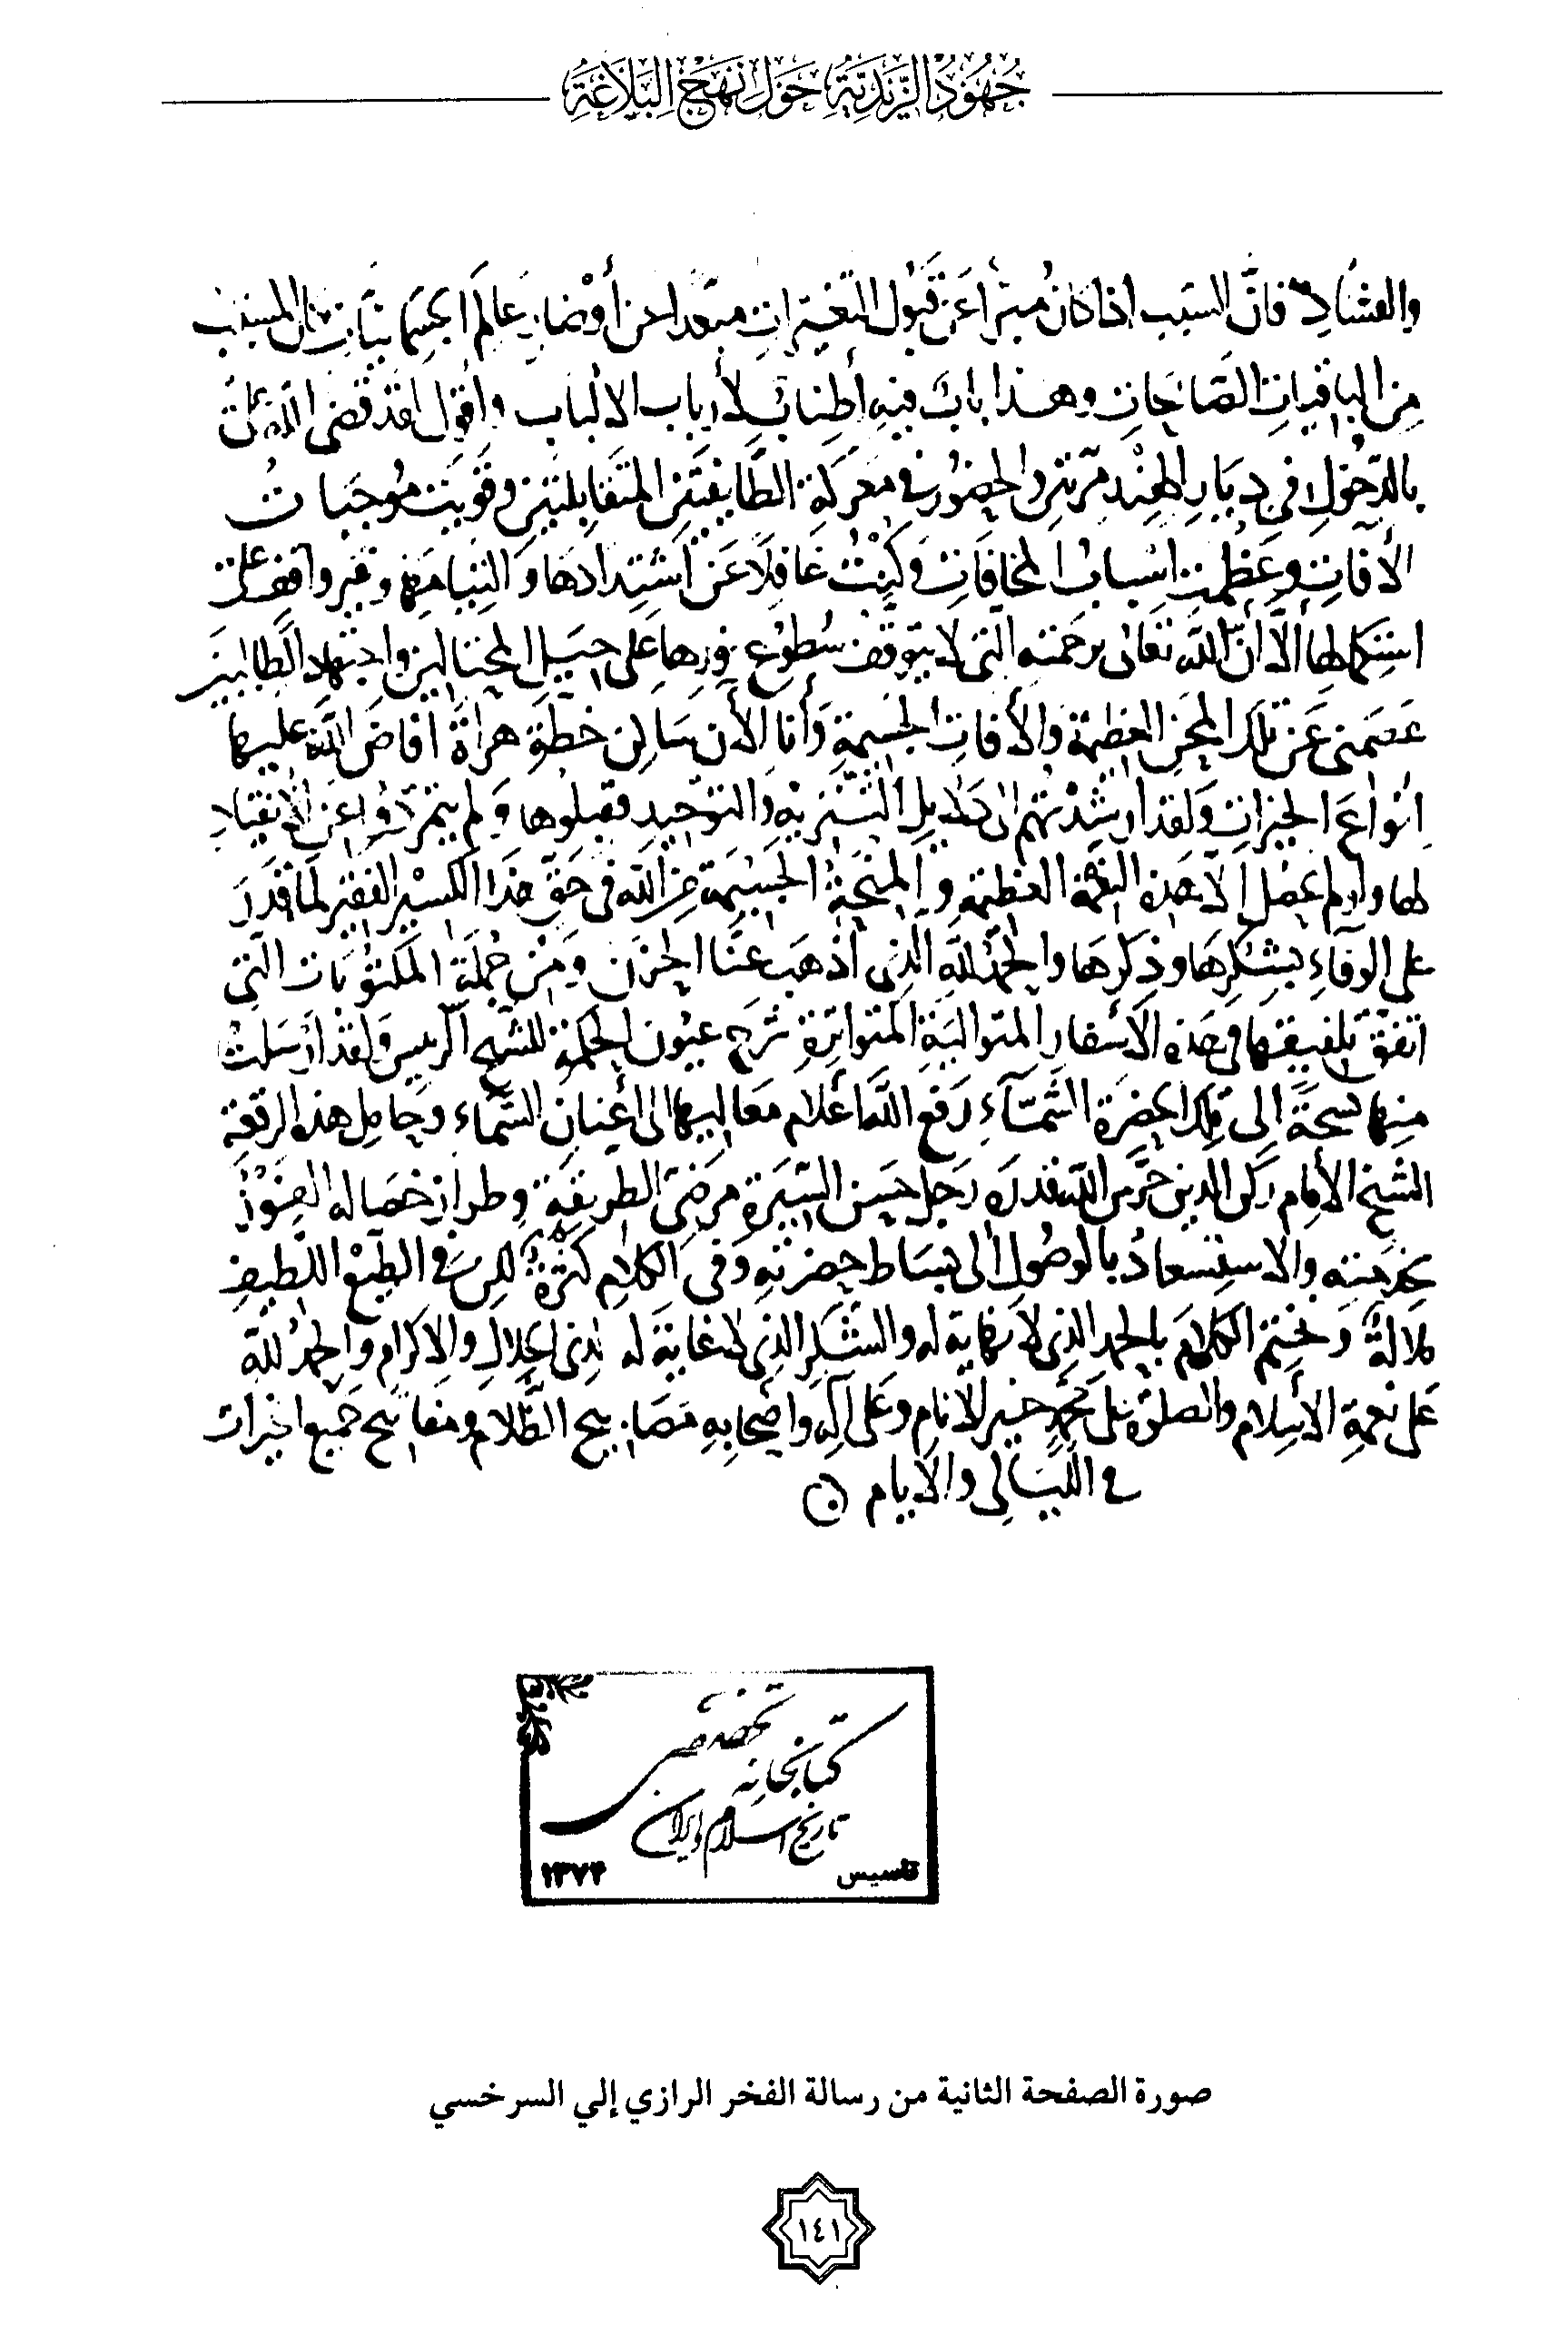 جُهُودُ الزَّيْدِيَّةِ حَوْلَ نَهْجِ الْبَلَاغَةِ
والفساد فانّ السبب اذا كان مبرأ عَن قَبُول التغيّرات مبعدا عن أوضار عالَم الجسمانيات كان المسبب
مِن الباقيات الصَّالحات وهذا بابٌ فيهِ أطناب لأرباب الالباب واقول لقد قضى الله علىّ
بالدّخول في ديَارِ الهِنْد مرّتين والحضُور في معركة الطَّايفتَين المتقَابلتين وقَويَت مُوجَبات
الآفاتِ وعَظُمت اسْبابُ المخافات وكُنْتُ غافِلًا عَن اشتدادها والتنبا منها وغير واقف على
استكمالها ألّا أنّ اللّه تعالى برحمَته التي لا يتوقّف سُطوع نورها على حِيَل المحتالين واجتهاد الطالبينَ
عَصَمني عَن تلك المِحَن العظيمة والآفات الجسيمةِ وَأنا الأن سَاكن خطّة هراة افاضَ اللّه عليها
انواعَ الخيراتِ وَلقد ارشدْتهم الى دَلايل التنزيه والتوحيد فقبلُوها وَلم يتمرّدوا عَن الانقياد
لها ولو لم يحصل الا هذه النعمة العظيمة والمِنحَة الجسيمة من اللّه في حَقّ هذا الكسير الفقير لما قدَرَ
على الوفاءِ بشكرهَا وذكرهَا والحمدُ للّه الّذي أذهبَ عنّا الحزن ومن جُملَة المكتوبَات التي
اتفق تلفيقها في هذه الأسفار المتواليَة المتواترة شرح عيُون الحكمة للشيخ الرّييس ولقد ارسَلتُ
منها نسخةً الى تلك الحضرَة الشمّآءِ رَفع اللّه أعلام مَعاليها الى أعنان السّماء وحامل هذه الرقعة
الشيخ الأمام ركن الدين حرَس اللّه قدرَه رَجل حسَن السّيرَة مرَضيّ الطريقة وطراز خصاله الفَوْز
بخدمته والاستسعادُ بالوصُول الى بسَاط حضرته وَفي الكلام كثرَةٌ لكن في الطبعْ اللطيف
ملالَةٌ وَنختم الكلامَ بالحمد الذي لا نهاية له والشكرِ الذي لا غايَةَ له لذى الجلالِ والاكرام والحمدُ للّه
عَلى نعمةِ الأسلام والصلوة على محمّدٍ خير الأنام وعَلى آلِهِ وأصحابهِ مصَابيح الظّلام ومفاتيح جَميع الخيرات
في الليَالي والأيام
کتابخانه تخصصی
تاریخ اسلام و ایران
تأسیس ۱۳۷۴
صورة الصفحة الثانية من رسالة الفخر الرازي إلي السرخسي
١٤١